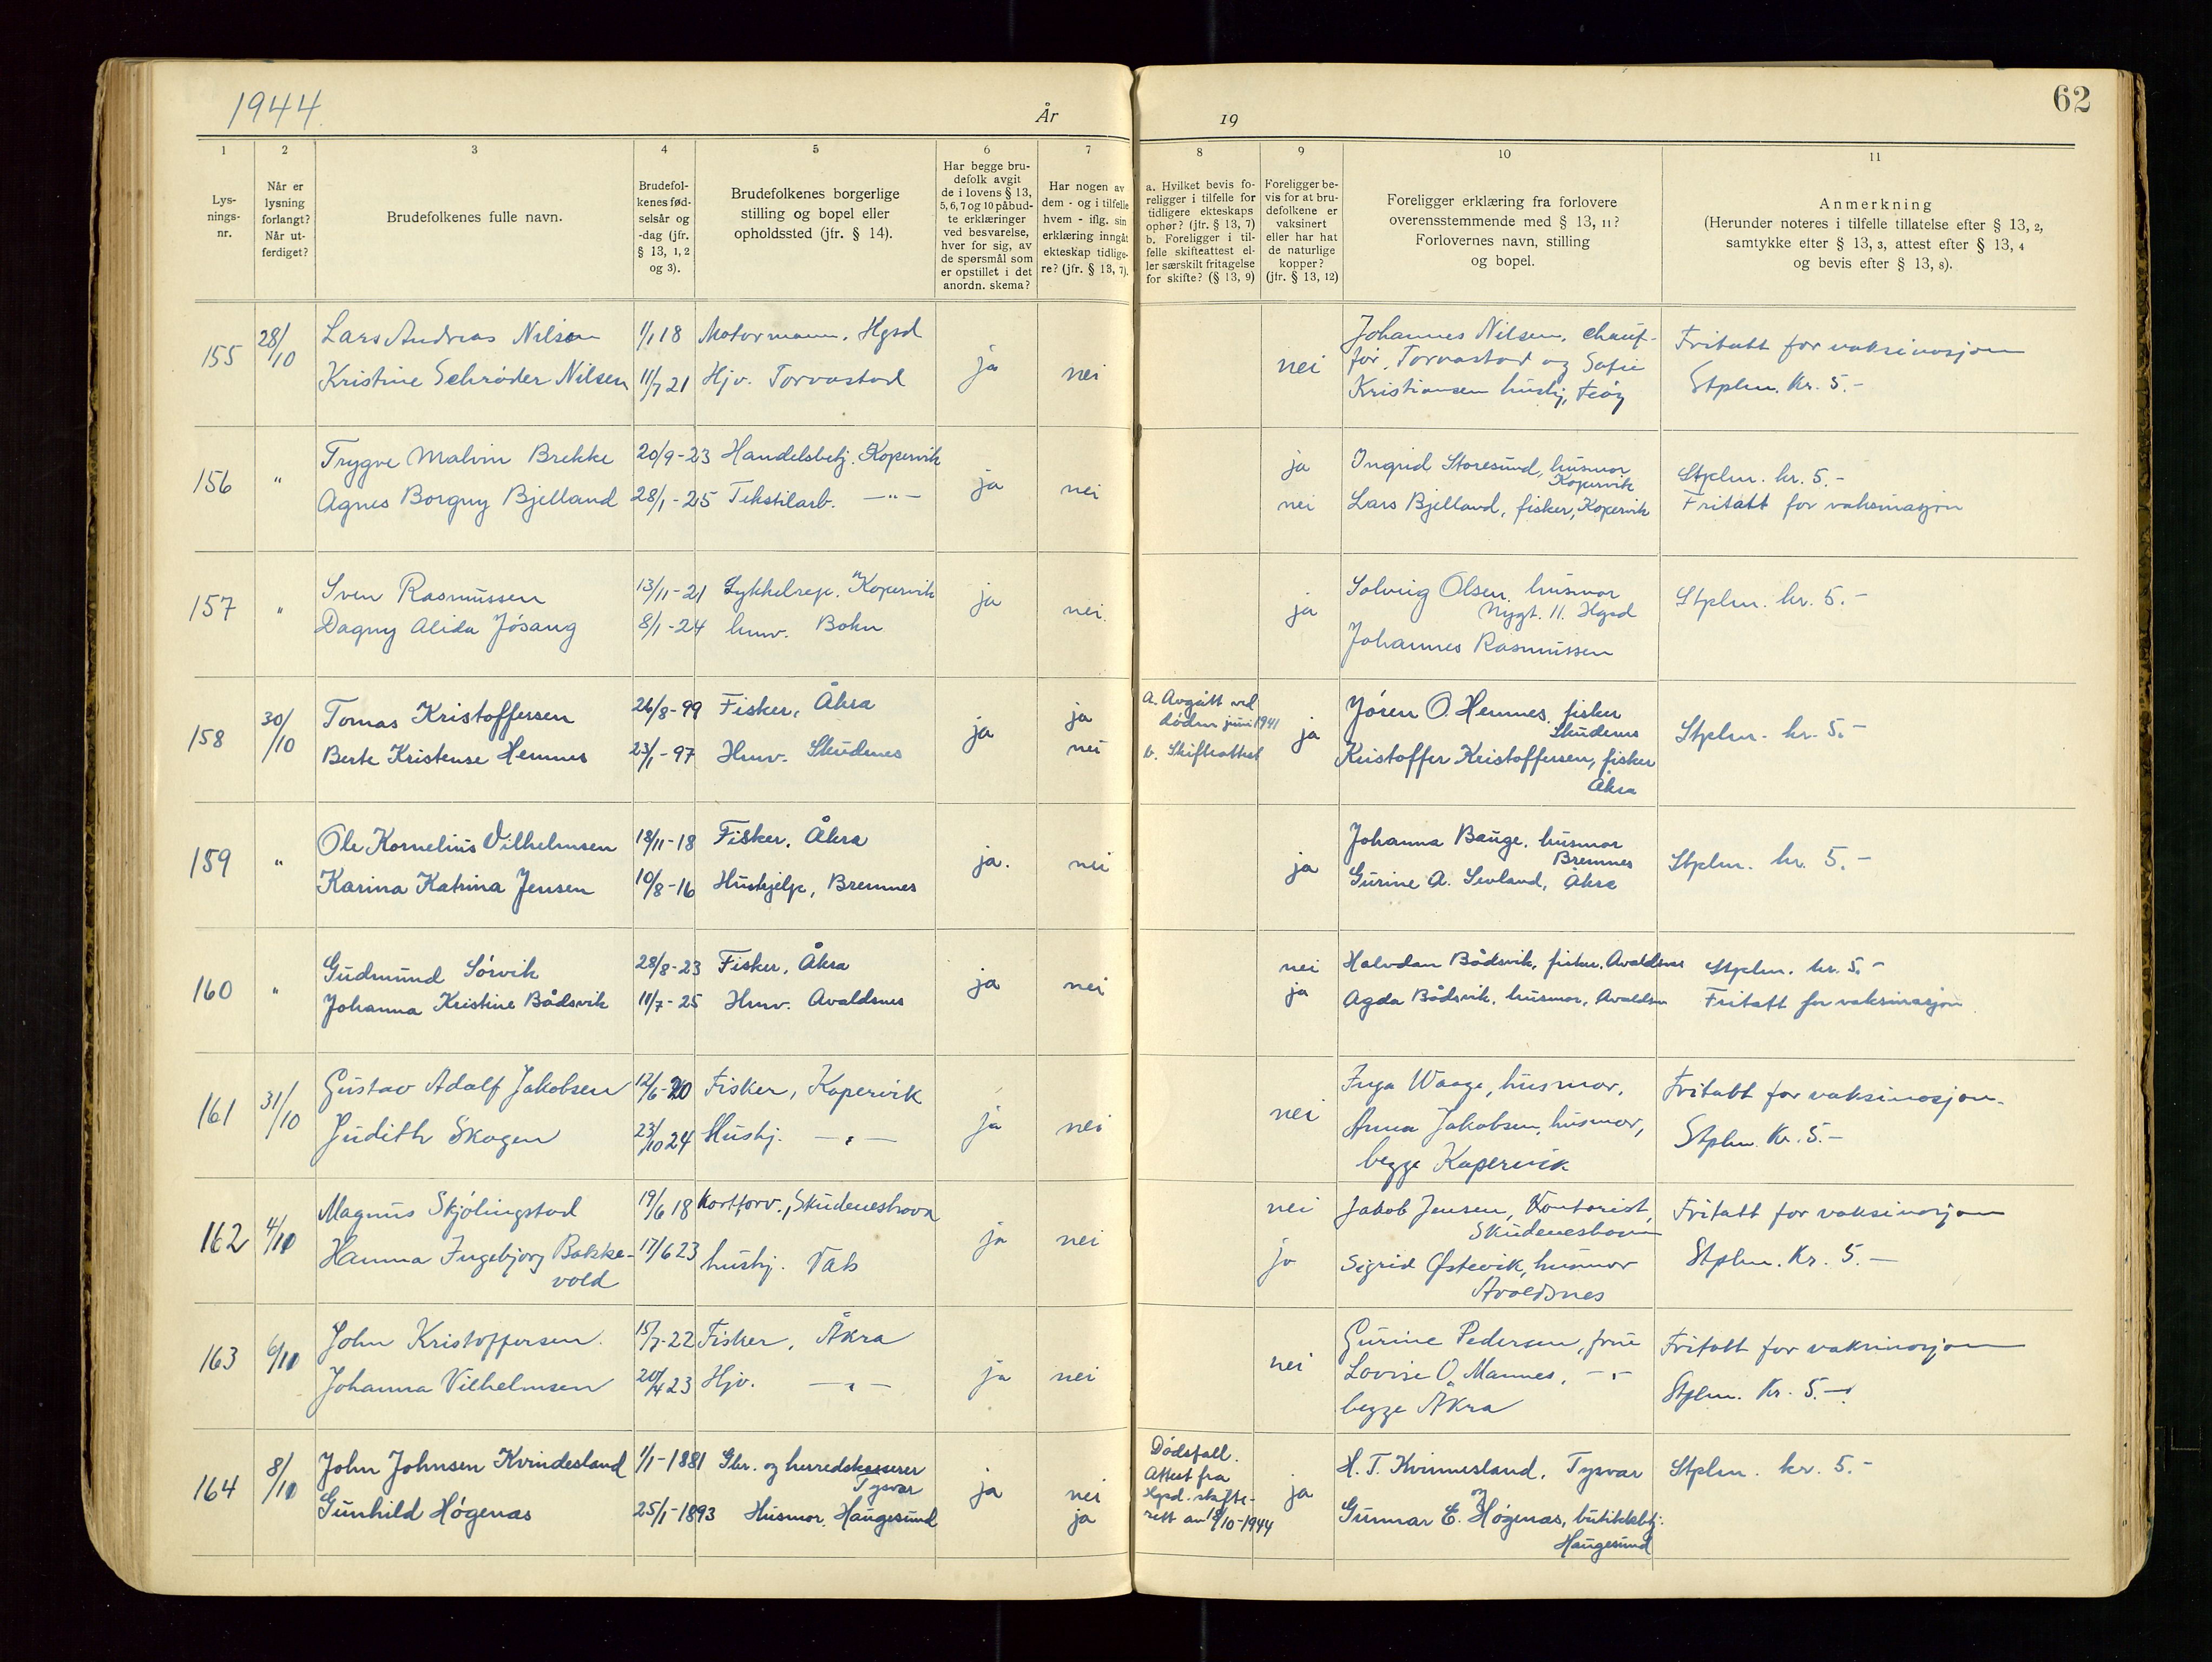 1944.
År
19
62
1
2
3
4
5
6
7
8
9
10
11
Lys-
nings-
nr.
Når er
lysning
forlangt?
Når ut-
ferdiget?
Brudefolkenes fulle navn.
Brudefol-
kenes fød-
selsår og
-dag (jfr.
§ 13, 1, 2
og 3).
Brudefolkenes borgerlige
stilling og bopel eller
opholdssted (jfr. § 14).
Har begge bru-
defolk avgit
de i lovens § 13,
5, 6, 7 og 10 påbud-
te erklæringer
ved besvarelse,
hver for sig, av
de spørsmål som
er opstillet i det
anordn. skema?
Har nogen av
dem - og i tilfelle
hvem - iflg. sin
erklæring inngåt
ekteskap tidlige-
re? (jfr. § 13, 7).
a. Hvilket bevis fo-
religger i tilfelle for
tidligere ekteskaps
ophør? (jfr. § 13, 7)
b. Foreligger i til-
felle skifteattest el-
ler særskilt fritagelse
for skifte? (§ 13, 9)
Foreligger be-
vis for at bru-
defolkene er
vaksinert
eller har hat
de naturlige
kopper?
(jfr. § 13, 12)
Foreligger erklæring fra forlovere
overensstemmende med § 13, 11?
Forlovernes navn, stilling
og bopel.
Anmerkning
(Herunder noteres i tilfelle tillatelse efter § 13, 2,
samtykke efter § 13, 3, attest efter § 13, 4
og bevis efter § 13, 8).
155
28/10
Lars Andreas Nilsen
1/1 18
Motormann, Hgsd
Kristine Schrøder Nilsen
11/7 21
Hjv. Torvastad
ja
nei
nei
Johannes Nilsen, chauf-
før, Torvastad og Sofie
Kristiansen hushj,
Fritatt for vaksinasjon
Stplm. Kr. 5.-
156
"
Trygve Malvin Brekke
20/9-23
Handelsbetj. Kopervik
Agnes Borgny Bjelland
28/1-25
Tekstilarb. —"—
ja
nei
ja
nei
Ingrid Storesund, husmor
Kopervik
Lars Bjelland, fisker, Kopervik
Stplm. kr. 5.-
Fritatt for vaksinasjon
157
"
Sven Rasmussen
13/11-21
Sykkelrep. Kopervik
Dagny Alida Jøsang
8/1-24
hmv. Bokn
ja
nei.
ja
Solveig Olsen, husmor
Nygt. 11. Hgsd
Johannes Rasmussen
Stplm. kr. 5.-
158
30/10
Tomas Kristoffersen
26/8-99
Fisker, Åkra
Berte Kristense Hemnes
23/1-97
Hmv. Skudnes
ja
ja
nei
a. Avgått ved
døden juni 1941
b. Skifteattest
ja
Jøren O. Hemnes, fisker
Skudenes
Kristoffer Kristoffersen, fisker
Åkra
Stplm. kr. 5.-
159
"
Ole Kornelius Vilhelmsen
18/11-18
Fisker, Åkra
Karina Katrina Jensen
10/8-16
Hushjelp, Bremnes
ja.
nei
ja
Johanna Bauge, husmor
Bremnes
Gurine A. Sevland, Åkra
Stplm. kr. 5.-
160
"
Gudmund Sørvik
28/8-23
Fisker, Åkra
Johanna Kristine Bådsvik
11/7-25
Hmv. Avaldsnes
ja
nei
nei
ja
Halvdan Bådsvik, fisker, Avaldsnes
Agda Bådsvik, husmor, Avaldsn
Stplm. kr. 5.-
Fritatt for vaksinasjon
161
31/10
Gustav Adolf Jakobsen
12/6-20
Fisker, Kopervik
Judith Skogen
23/10 24
Hushj. —"—
ja
nei
nei
Inga Waage, husmor,
Anna Jakobsen, husmor,
begge Kopervik
Fritatt for vaksinasjon.
Stplm. Kr. 5.-
162
4/11
Magnus Skjølingstad
19/6 18
Kortforv., Skudeneshavn
Hanna Ingebjorg Bakke-
vold
17/6 23
hushj. Vats
ja
nei
nei
ja
Jakob Jensen, Kontorist,
Skudeneshavn
Sigrid Østevik, husmor
Avaldsnes
Fritatt for vaksinasjon
Stplm. Kr. 5.-
163
6/11
John Kristoffersen.
15/7-22
Fisker, Åkra
Johanna Vilhelmsen
20/4 23
Hjv. —"—
ja
nei
nei
Gurine Pedersen, frue
Lovise O. Mannes, -"-
begge Åkra
Fritatt for vaksinasjon
Stplm. Kr. 5.-
164
8/11
John Johnsen Kvindesland
1/1-1881
Gbr. og herredskasserer
Tysvær
Gunhild Høgenas
25/1-1893
Husmor, Haugesund
ja
nei
ja
Dødsfall.
Attest fra
Hgsd. skifte-
rett av 18/10-1944
ja
H. T. Kvinnesland, Tysvar
og
Gunnar E. Høgenas, butikkbetj.
Haugesund
Stplm. kr. 5.-